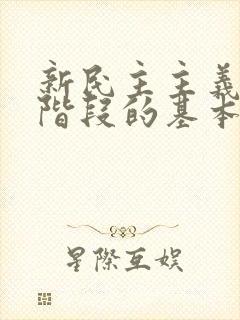 新民主主義
階段的基本
星際互娱